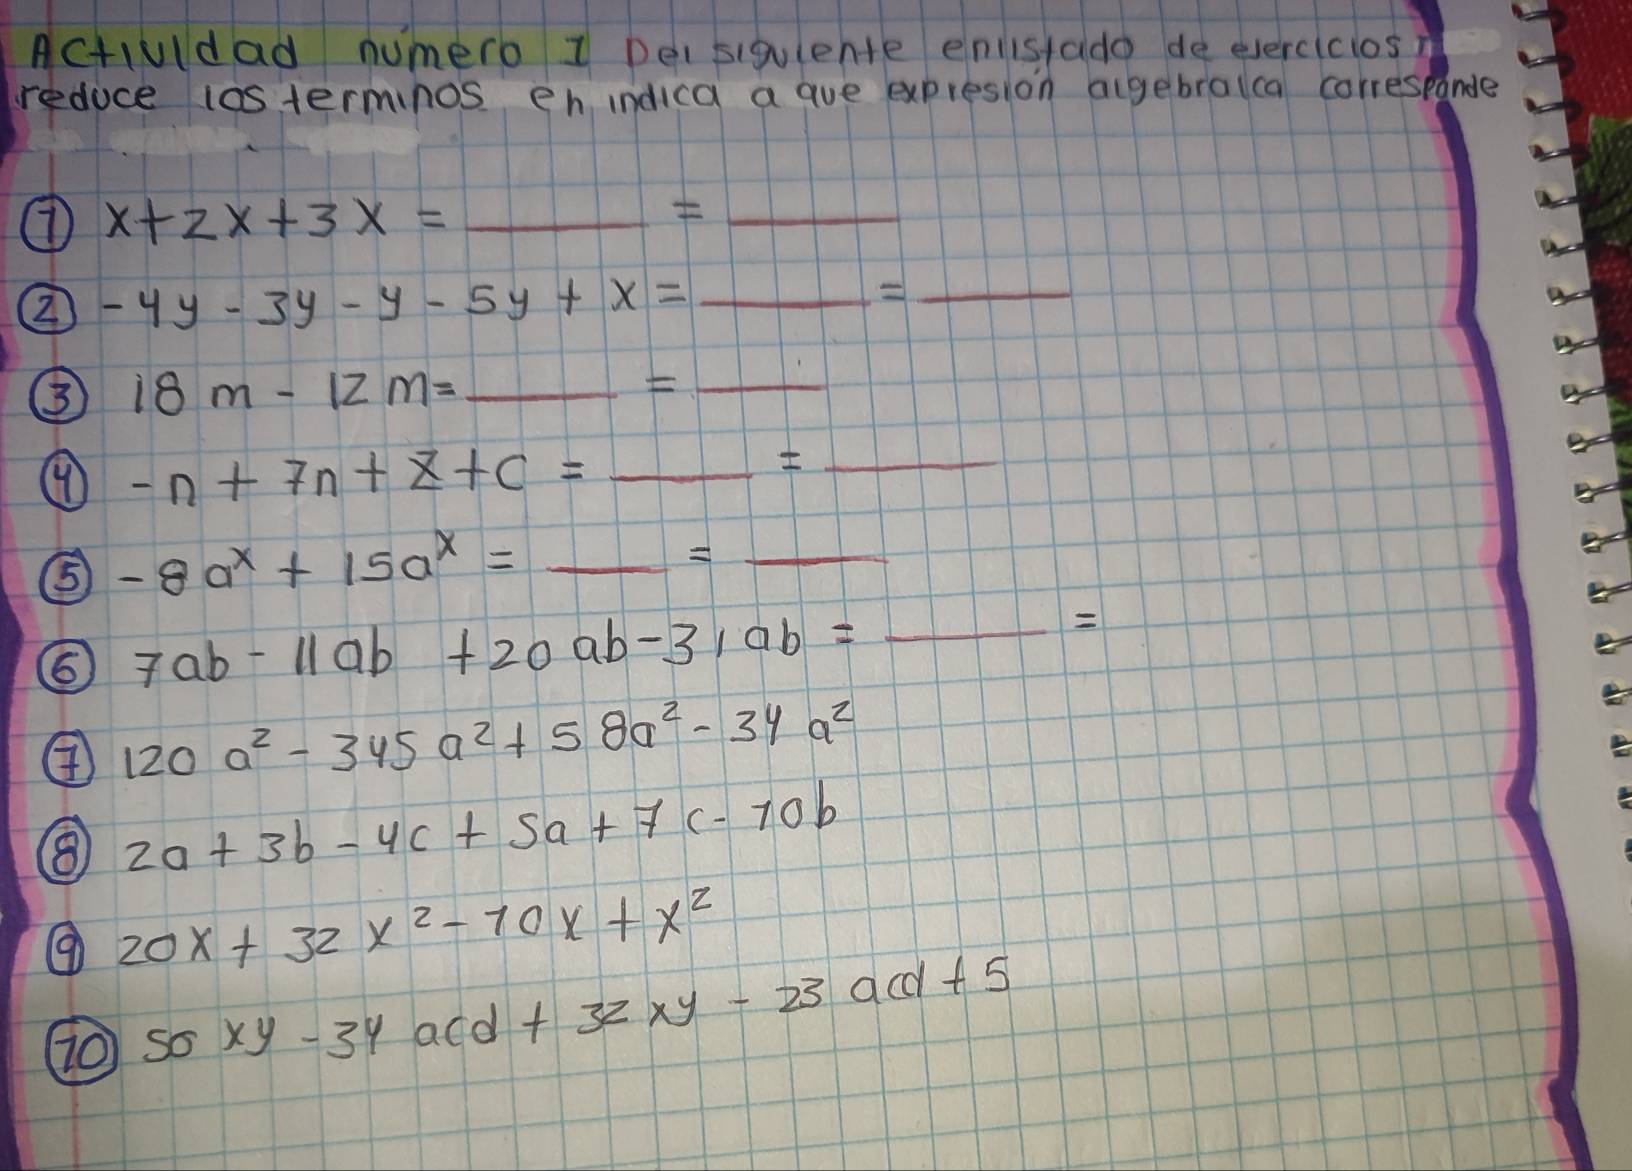 Actividad número 1 Del siguiente enlistado de ejercicios
reduce los terminos en indica a que expresión algebraica corresponde
① x+2x+3x = ______ = ______
② -4y - 3y - y - 5y + x = ______ = ______
③ 18m - 12m = ______ = ______
④ -n + 7n + z + c = ______ = ______
⑤ -8aˣ + 15aˣ = ______ = ______
⑥ 7ab - 11ab + 20ab - 31ab = ______ =
⑦ 120a² - 345a² + 58a² - 34a²
⑧ 2a + 3b - 4c + 5a + 7c - 10b
⑨ 20x + 32x² - 10x + x²
⑩ 50xy - 34acd + 32xy - 23acd + 5